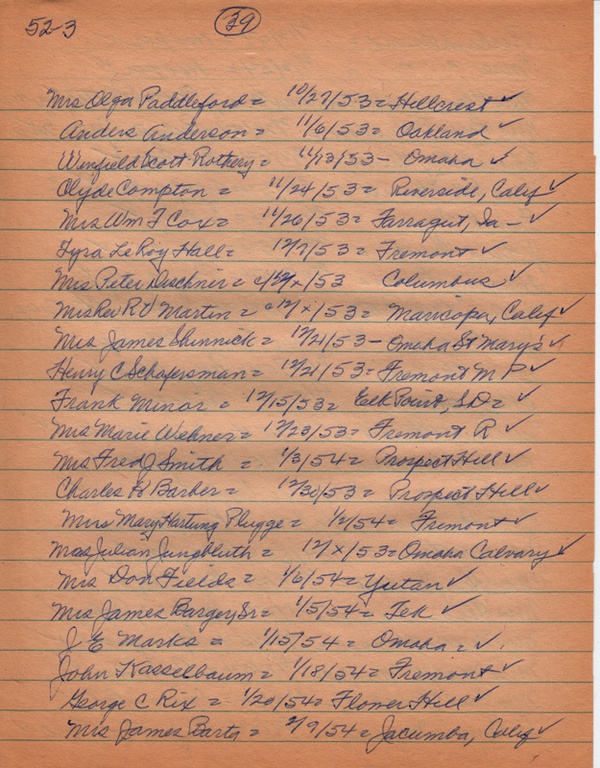 52-3 39
Mrs Olga Paddleford = 10/27/53 = Hillcrest ✓
Anders Anderson = 11/6/53 = Oakland ✓
Winfield Scott Rothery = 11/13/53 - Omaha ✓
Clyde Compton = 11/24/53 = Riverside, Calif ✓
Mrs Wm F Cox = 11/26/53 = Farragut, Ia - ✓
Tyra LeRoy Hall = 12/7/53 = Fremont ✓
Mrs Peter Dischner = 12/x/53 Columbus ✓
Mrs Rev R V Martin = c12/x/53 = Maricopa, Calif ✓
Mrs James Shinnick = 12/21/53 - Omaha St Mary's ✓
Henry C Schafersman = 12/21/53 = Fremont M P ✓
Frank Minor = 12/15/53 = Elk Point, SD = ✓
Mrs Marie Wehner = 12/23/53 = Fremont R ✓
Mrs Fred J Smith = 1/3/54 = Prospect Hill ✓
Charles H Barber = 12/30/53 = Prospect Hill ✓
Mrs Mary Hartung Plugge = 1/2/54 = Fremont ✓
Mrs Julian Jungbluth = 12/x/53 = Omaha Calvary ✓
Mrs Don Fields = 1/6/54 = Yutan ✓
Mrs James Bargey Sr = 1/5/54 = Tek ✓
J E Marks = 1/15/54 = Omaha = ✓
John Kasselbaum = 1/18/54 = Fremont ✓
George C Rix = 1/20/54 = Flower Hill ✓
Mrs James Barta = 2/9/54 = Jacumba, Calif ✓